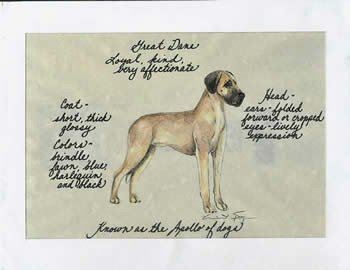 Great Dane
Loyal, kind,
very affectionate
Coat -
short, thick
glossy
Colors -
brindle,
fawn, blue,
harlequin
and black
Head -
ears - folded
forward or cropped
eyes - lively
expression
Known as the Apollo of dogs